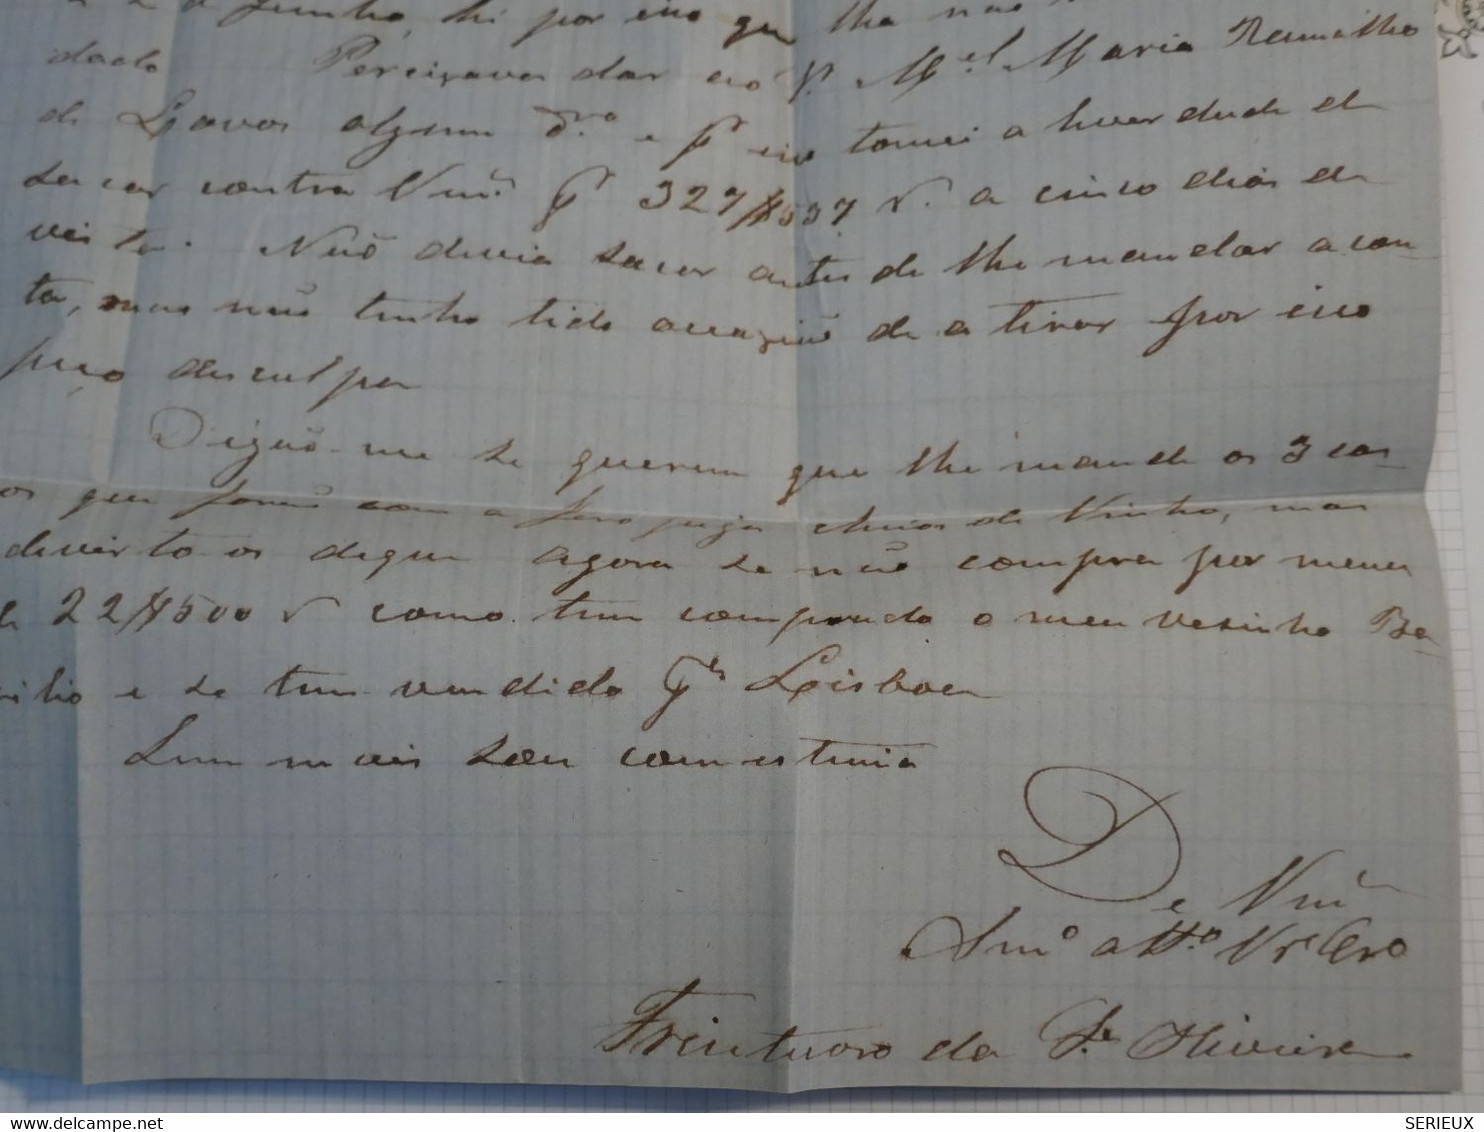 e 2 de Junho, hi por isso que lha não
dado Percizava dar ao Sr. Mel Maria Ramilho
de Lavos algum drº e pr isso tomei a liverdade de
sacar contra Vmce pr 327$537 r. a cinco dias de
vista. Não devia sacar antes de lhe mandar a con-
ta, mas não tenho tido occazião de a tirar por isso
peço desculpa
Digão-me se querem que lhe mande os 3 cas-
os que forão com a cheios de Vinho, mas
advirto-os de que agora se não compra por menos
de 22$500 r como tem comprado o meu vesinho Ba-
silio e se tem vendido pª Lisboa
Sem mais sou com estima
De Vmce
Amº attº Vr Cro
da Sª Oliveira
SERIEUX